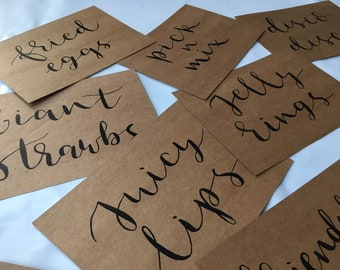 fried
eggs
pick
n
mix
disco
disc
Giant
Strawbs
Jelly
rings
Juicy
lips